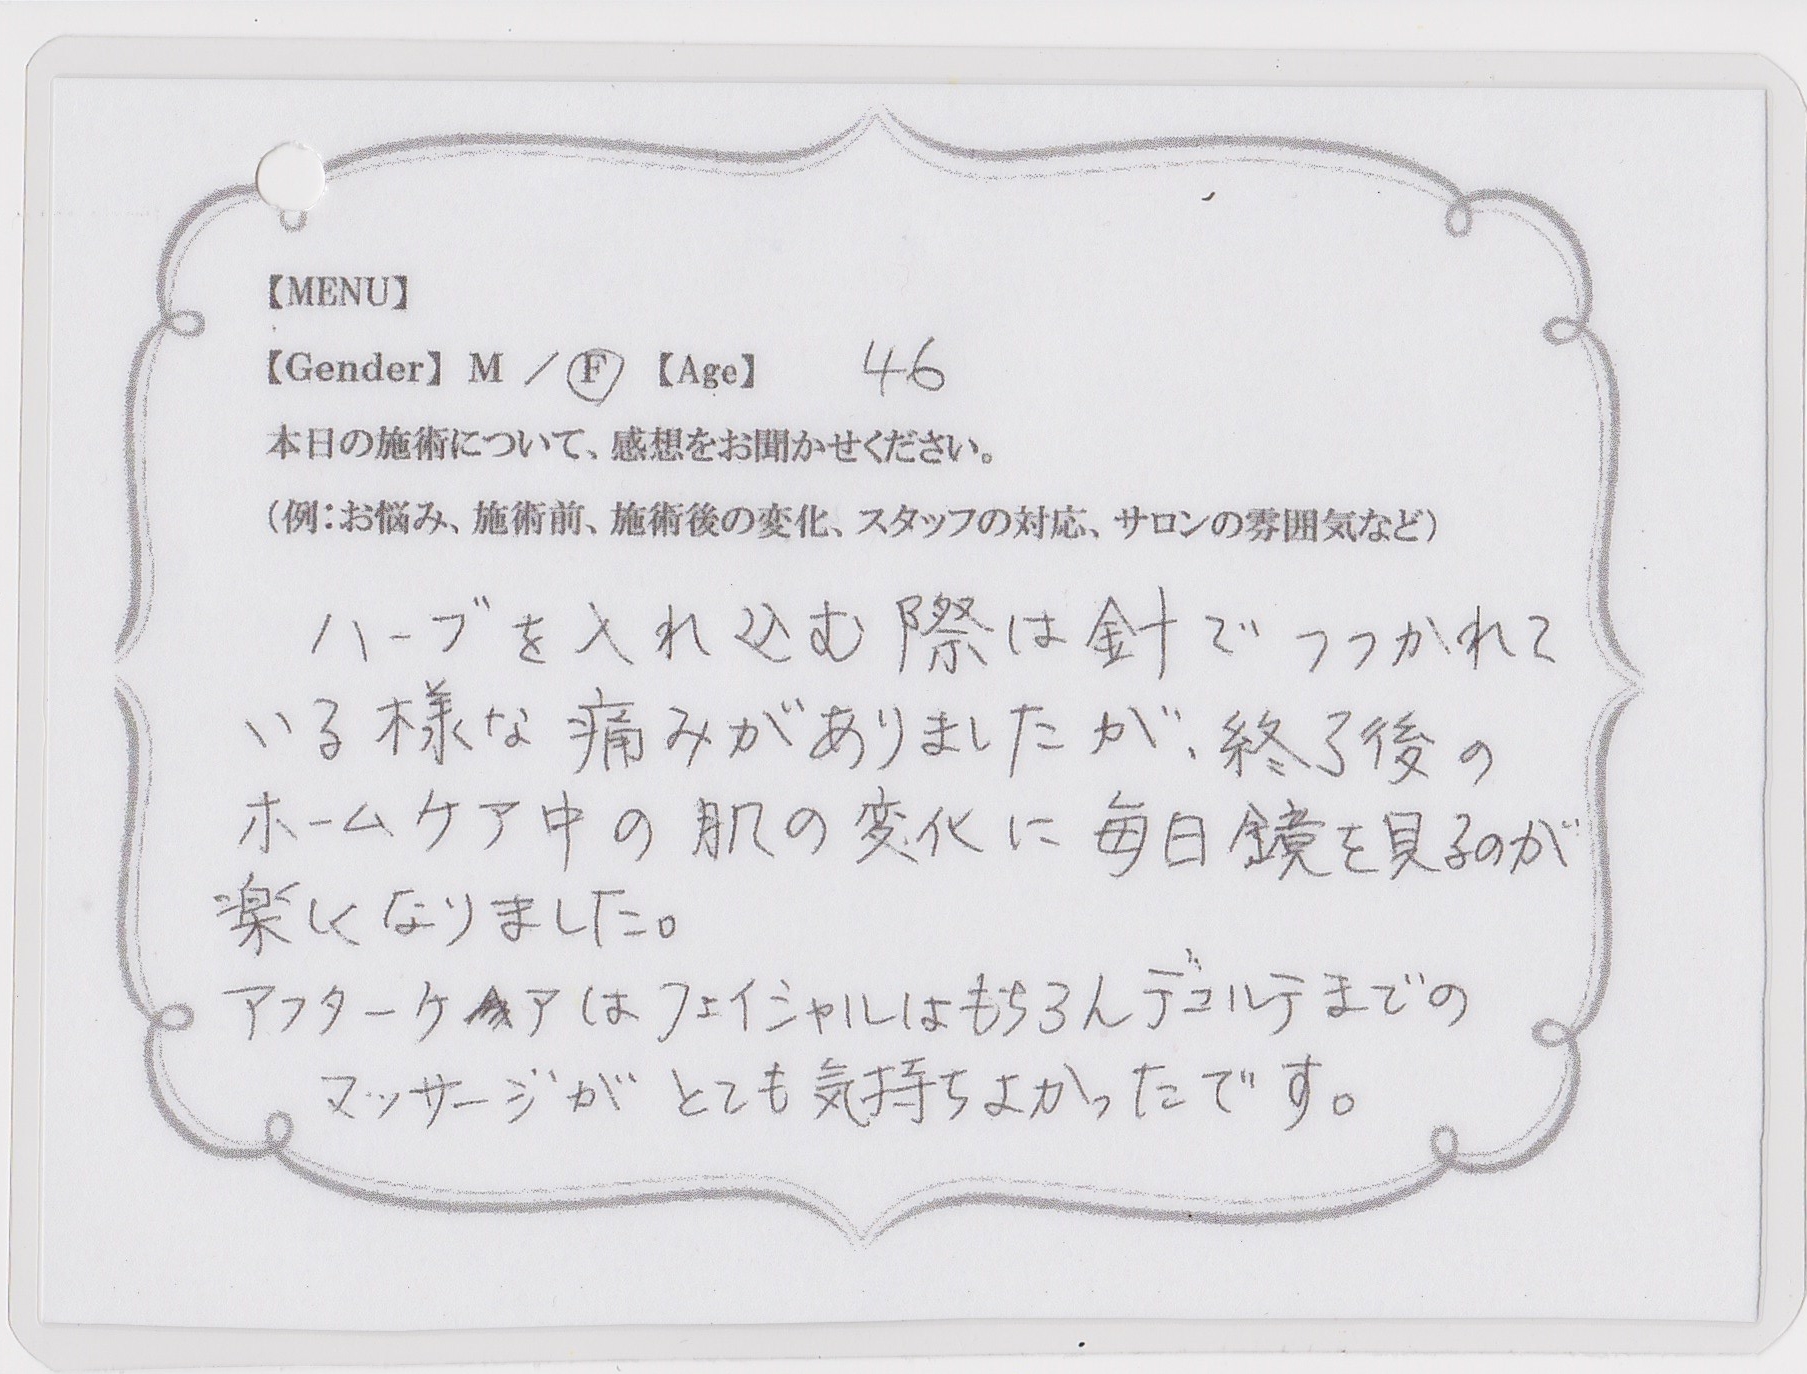 【MENU】
【Gender】 M ／ F 【Age】 46
本日の施術について、感想をお聞かせください。
（例：お悩み、施術前、施術後の変化、スタッフの対応、サロンの雰囲気など）
ハーブを入れ込む際は針でつつかれて
いる様な痛みがありましたが、終了後の
ホームケア中の肌の変化に毎日鏡を見るのが
楽しくなりました。
アフターケアはフェイシャルはもちろんデコルテまでの
マッサージがとても気持ちよかったです。